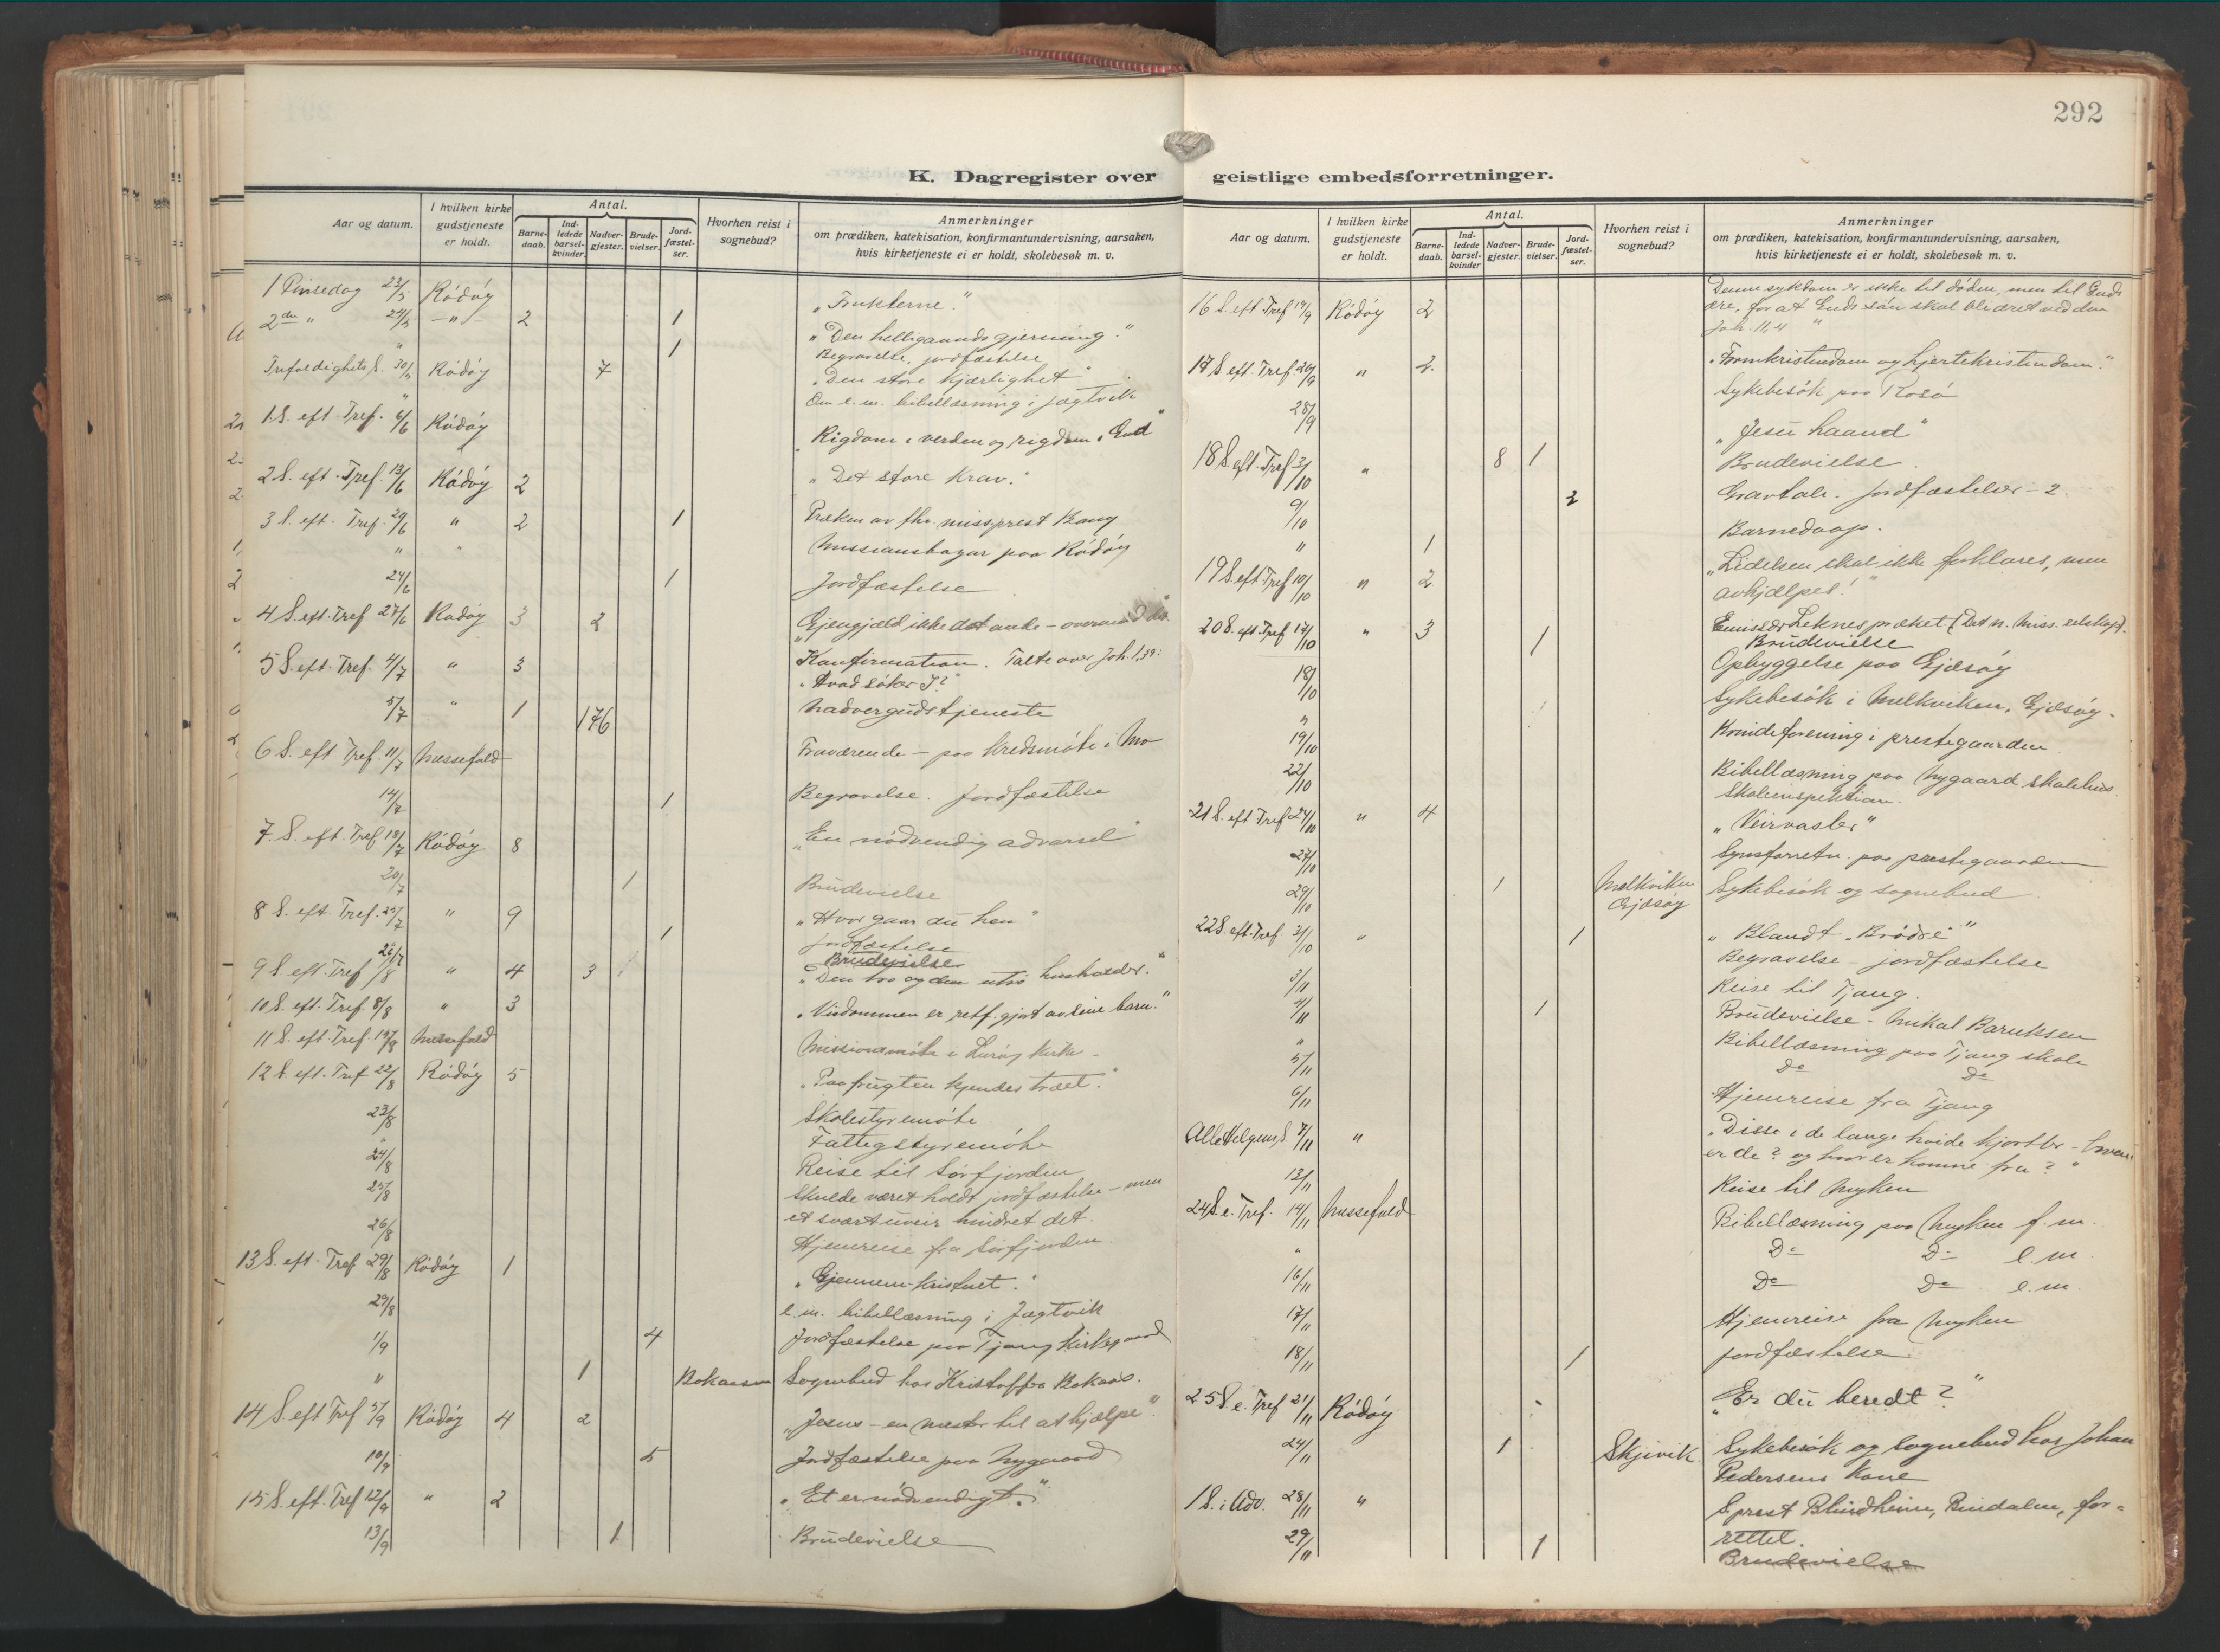 292
K. Dagregister over geistlige embedsforretninger.
Aar og datum. I hvilken kirke gudstjeneste er holdt. Antal. Barnedaab. Indledede barselkvinder. Nadvergjester. Brudevielser. Jordfæstelser. Hvorhen reist i sognebud? Anmerkninger om prædiken, katekisation, konfirmantundervisning, aarsaken, hvis kirketjeneste ei er holdt, skolebesøk m. v.
1 Pinsedag 23/5 Rödöy „Frukterne."
2den " 24/5 —"— 2 1 „Den helligaands gjerning."
" 1 Begravelse, jordfæstelse
Trefoldighets S. 30/5 Rödöy 7 „Den store kjærlighet"
" Om e. m. bibellæsning i Jægtvik
1 S. eft. Tref. 6/6 Rödöy „Rigdom i verden og rigdom i Gud"
2 S. eft. Tref. 13/6 Rödöy 2 „Det store krav."
3 S. eft. Tref. 20/6 " 2 1 Præken av fhv. missprest Bang
" " Missionsbazar paa Rödöy
24/6 1 Jordfæstelse
4 S. eft. Tref 27/6 Rödöy 3 2 „Gjengjæld ikke det onde – overvind det
5 S. eft. Tref. 4/7 " 3 Konfirmation. Talte over Joh. 1,39:
„Hvad söker I?"
5/7 " 1 176 Nadvergudstjeneste
6 S. eft Tref. 11/7 Messefald Fraværende – paa kredsmöte i Mo
14/7 1 Begravelse. Jordfæstelse
7 S. eft. Tref 18/7 Rödöy 8 „En nödvendig advarsel"
20/7 1 Brudevielse
8 S. eft. Tref. 25/7 " 9 „Hvor gaar du hen"
1 Jordfæstelse
26/7 1 Brudevielse
9 S. eft. Tref 1/8 " 4 3 „Den tro og den utro husholder."
10 S. eft. Tref. 8/8 " 3 „Visdommen er retf.gjort av sine barn."
11 S. eft. Tref. 15/8 Messefald Missionsmöte i Luröy kirke –
12 S. eft. Tref 22/8 Rödöy 5 „Paa frugten kjendes træet."
23/8 Skolestyremöte
" Fattigstyremöte
24/8 Reise til Sörfjorden
25/8 Skulde været holdt jordfæstelse – men
et svært uveir hindret det.
26/8 Hjemreise fra Sörfjorden
13 S. eft. Tref 29/8 Rödöy 1 „Gjennem-kristnet."
29/8 e. m. bibellæsning i Jægtvik
1/9 4 Jordfæstelse paa Tjong kirkegaard
" 1 Sognebud hos Kristoffer Bokaas.
14 S. eft Tref 5/9 Rödöy 4 2 „Jesus – en mester til at hjælpe".
10/9 5 Jordfæstelse paa Nygaard
15 S. eft. Tref 12/9 " 2 „Et er nödvendigt."
13/9 1 Brudevielse
Aar og datum. I hvilken kirke gudstjeneste er holdt. Antal. Barnedaab. Indledede barselkvinder Nadvergjester. Brudevielser. Jordfæstelser. Hvorhen reist i sognebud? Anmerkninger om prædiken, katekisation, konfirmantundervisning, aarsaken, hvis kirketjeneste ei er holdt, skolebesøk m. v.
16 S. eft Tref 19/9 Rödöy 2 Denne sykdom er ikke til döden, men til Guds
ære, for at Guds sön skal bli æret ved den
Joh. 11,4 "
17 S. eft. Tref 26/9 " 2 „Formkristendom og hjertekristendom."
Sykebesök paa Rosö
28/9
„Jesu haand"
18 S. eft. Tref 3/10 " 8 1 Brudevielse.
9/10 2 Gravtale. Jordfæstelser – 2.
" 1 Barnedaap.
19 S. eft Tref 10/10 " 2 „Lidelsen skal ikke forklares, men
avhjælpes!"
20 S. eft. Tref 17/10 " 3 1 Emissær Leknes præket (Det n. miss. selskap).
Brudevielse
18/10 Opbyggelse paa Gjæsöy
" Sykebesök i Melkviken, Gjæsöy.
19/10 Kvindeforening i prestegaarden
22/10 Bibellæsning paa Nygaard skolehus.
Skoleinspektion.
21 S. eft Tref 24/10 " 4 „Veirvarsler"
27/10 Synsforretn. paa prestegaarden
29/10 1 Melkviken Gjæsöy Sykebesök og sognebud
22 S. eft. Tref 31/10 " 1 „Blandt „Brödre""
Begravelse – jordfæstelse
3/11 Reise til Tjong.
4/11 1 Brudevielse – Mikal Baruksen
" Bibellæsning paa Tjong skole
5/11 Do Do
6/11 Hjemreise fra Tjong
Alle Helgens S. 7/11 " „Disse i de lange hvide kjortler – hvem
er de? og hvor er komne fra?"
13/11 Reise til Myken
24 S. e. Tref. 14/11 Messefald Bibellæsning paa Myken f. m.
" Do Do e. m.
16/11 Do Do e. m.
17/11 Hjemreise fra Myken
18/11 1 Jordfæstelse.
25 S. e. Tref 21/11 Rödöy „Er du beredt?"
24/11 1 Skjivik Sykebesök og sognebud hos Johan
Pedersens kone
1 S. i Adv. 28/11 " S. prest Blindheim, Bindalen, for-
rettet.
29/11 1 Brudevielse